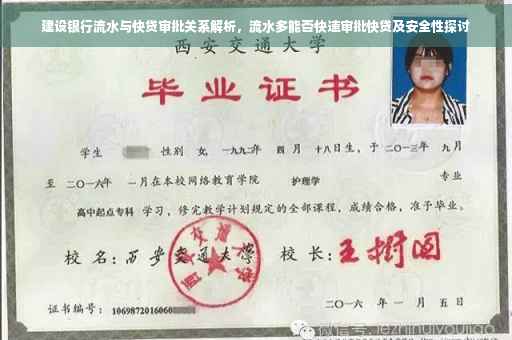 建设银行流水与快贷审批关系解析，流水多能否快速审批快贷及安全性探讨
西安交通大学
毕业证书
学生 性别 女，一九九二年 四月 十八日生，于二〇一三年 九月
至 二〇一六年 一月在本校网络教育学院 护理学 专业
高中起点专科 学习，修完教学计划规定的全部课程，成绩合格，准予毕业。
校名：西安交通大学 校长：王树国
西安交通大学
证书编号：1069872016060
二〇一六年 一月五日
微信号: jezhihuiyoujiao